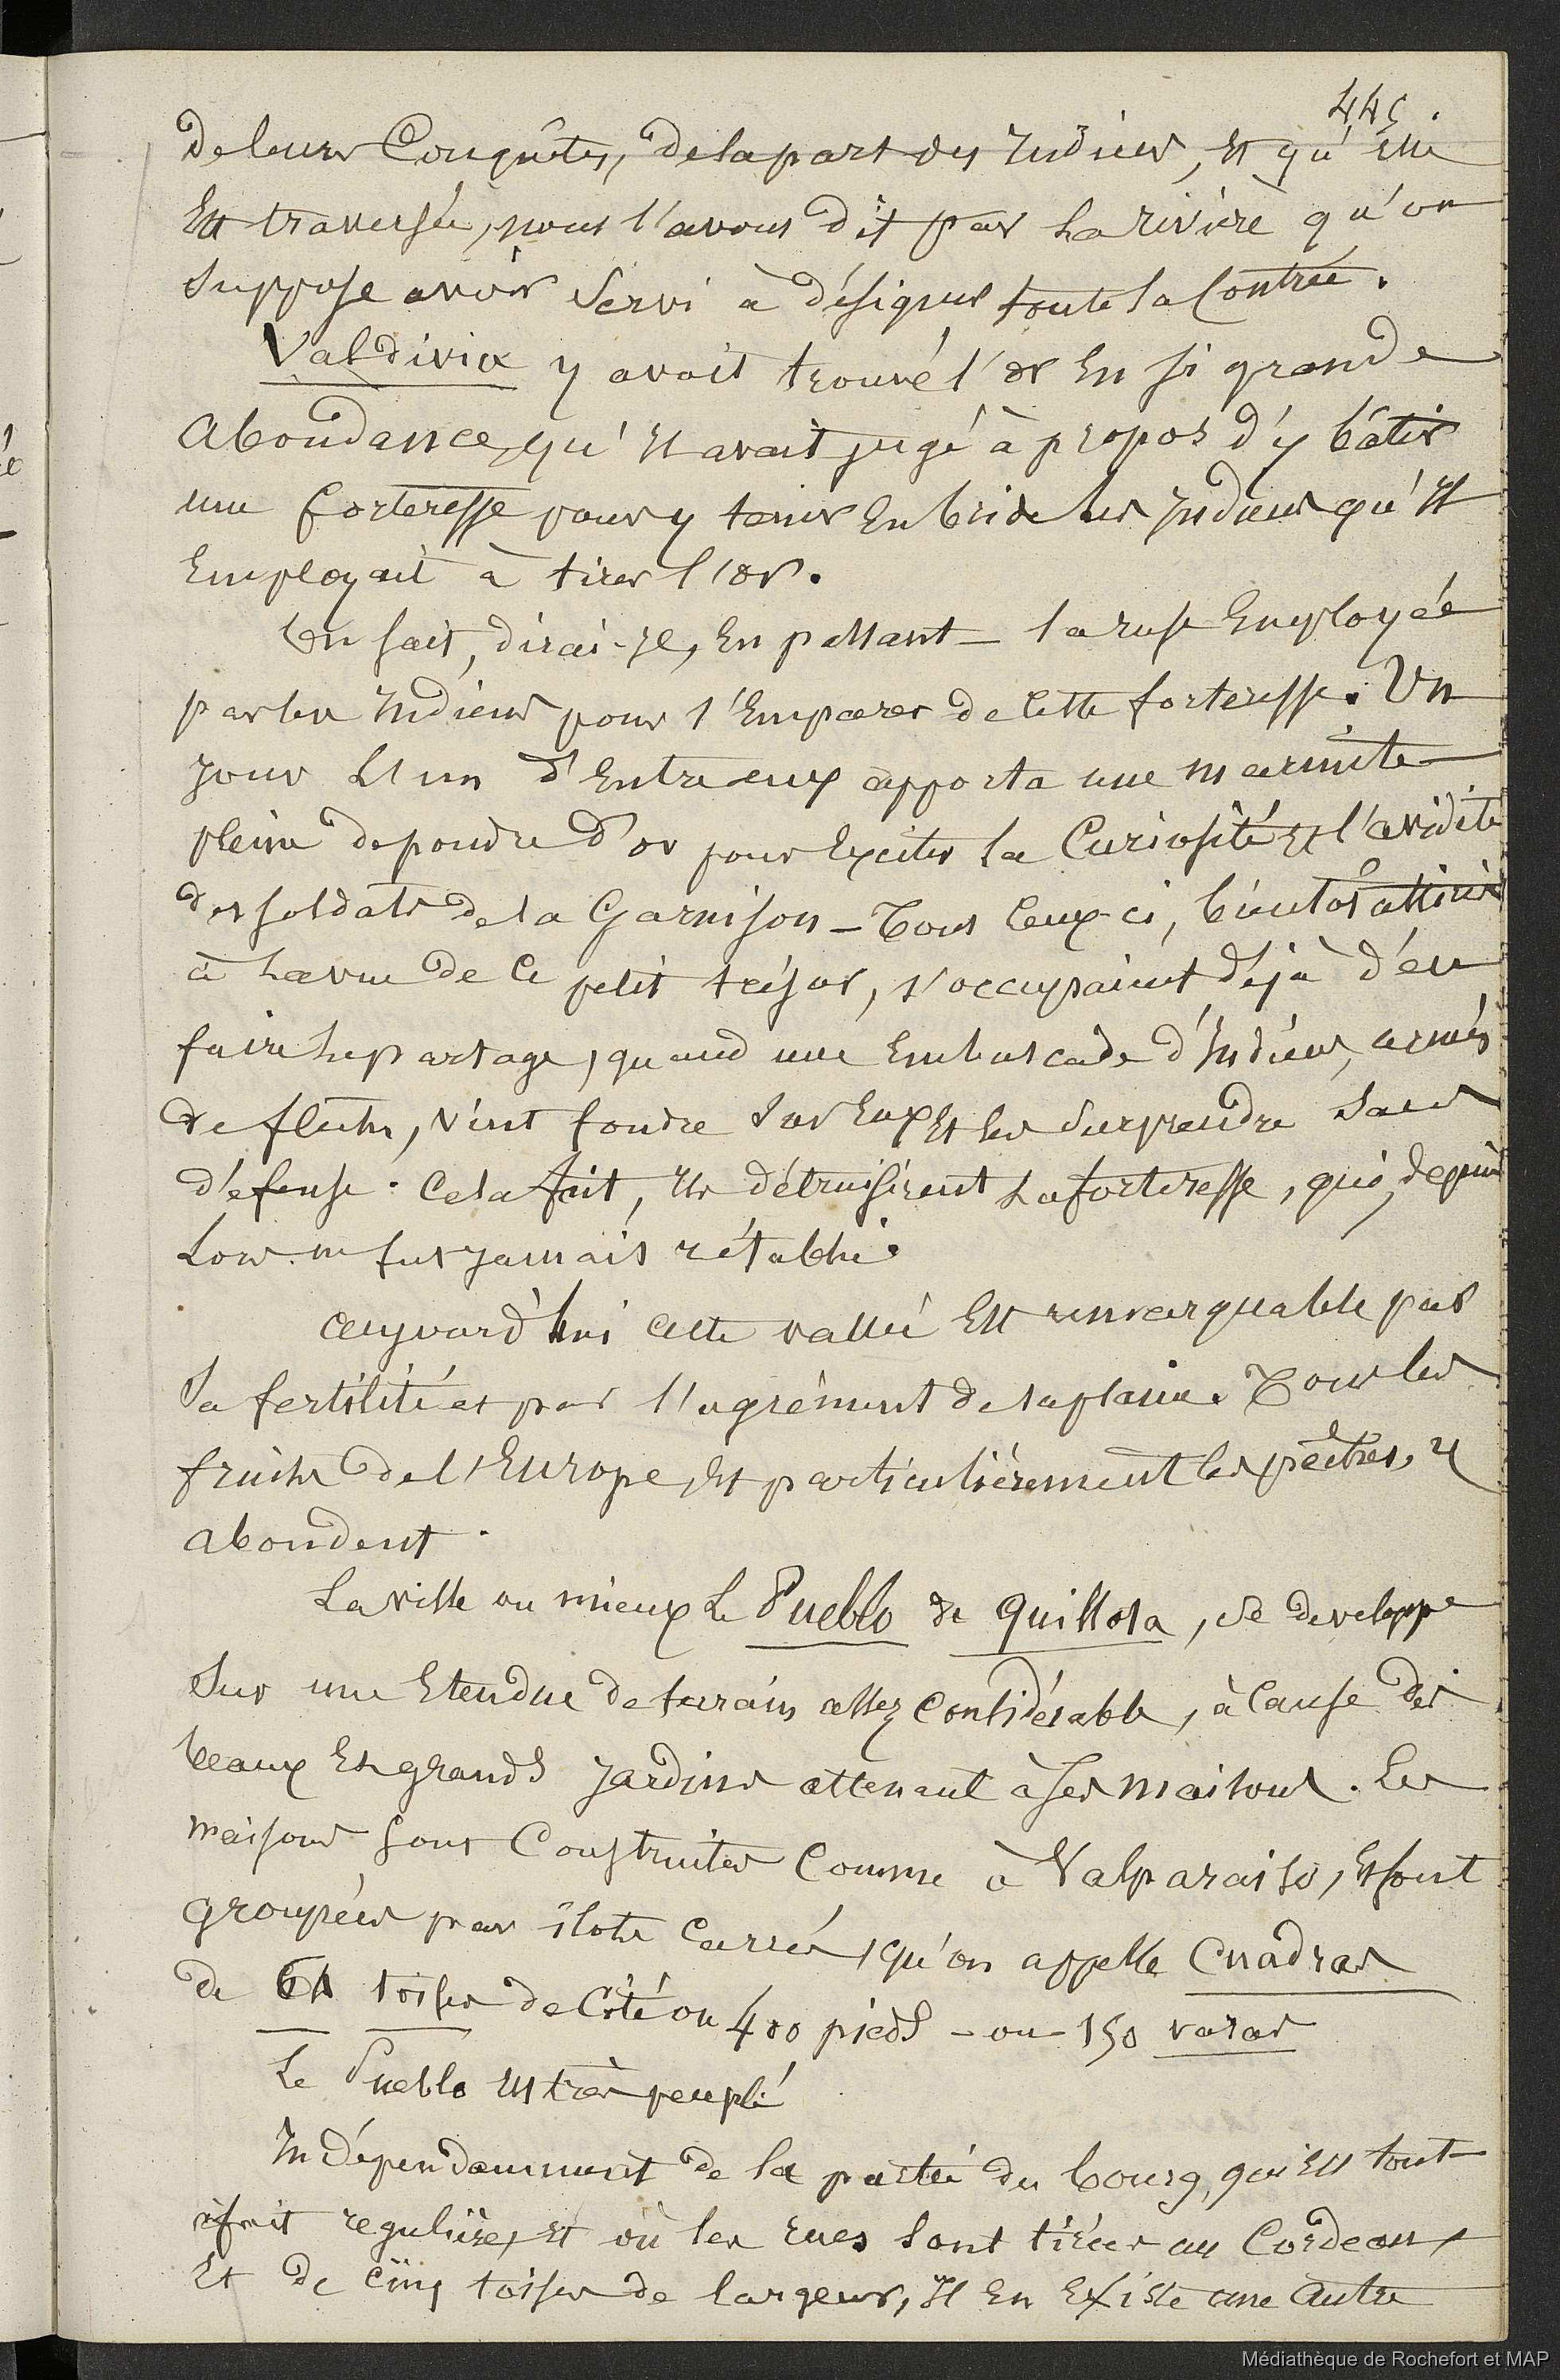 445.
de leurs Conquêtes, de la part des Indiens, et qu'elle
Est traversée, nous l'avons dit par la rivière qu'on
suppose avoir servi à désigner toute la Contrée.
Valdivia y avait trouvé l'or En si grande
Abondance, qu'il avait jugé à propos d'y bâtir
une forteresse pour y tenir En bride les Indiens qu'il
Employait à tirer l'or.
On sait, dirai-je, En passant – la ruse Employée
par les Indiens pour s'Emparer de Cette forteresse. Un
jour L'un d'Entre eux apporta une marmite
pleine de poudre d'or pour Exciter la Curiosité et l'avidité
des soldats de la Garnison – Tous Ceux-ci, bientôt attirés
à la vue de Ce petit trésor, s'occupaient déjà d'en
faire le partage, quand une Embuscade d'Indiens, armés
de flêches, vint fondre sur Eux Et les surprendre sans
défense. Cela fait, Ils détruisirent la forteresse, qui, depuis
Lors ne fut jamais rétablie.
Aujourd'hui cette vallée Est remarquable par
sa fertilité et par l'agrément de sa plaine. Tous les
fruits de l'Europe, Et particulièrement les pêches, y
abondent.
La ville ou mieux Le Pueblo de Quillota, se developpe
sur une Etendue de terrain assez Considérable, à Cause des
beaux Et grands jardins attenant à ses maisons. Les
maisons sont Construites Comme à Valparaiso, Et sont
groupées par îlots Carrés, qu'on appelle Cuadras
de 64 toises de Côté ou 400 pieds – ou – 150 varas
Le Pueblo Est très peuplé
Indépendamment de la partie du bourg, qui Est tout
à fait regulière, Et où les rues sont tirées au Cordeau,
Et de Cinq toises de largeur, Il En Existe une Autre
Médiathèque de Rochefort et MAP